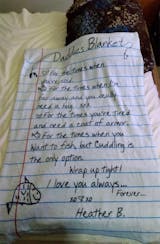 Daddy's Blanket
For the times when
you're cold
For the times when I'm
far away and you really
need a hug
For the times you're tired
and need a coat of armor.
For the times when you
Want to fish, but Cuddling is
the only option.
Wrap up tight!
I love you always...
Forever...
xoxo
Heather B.